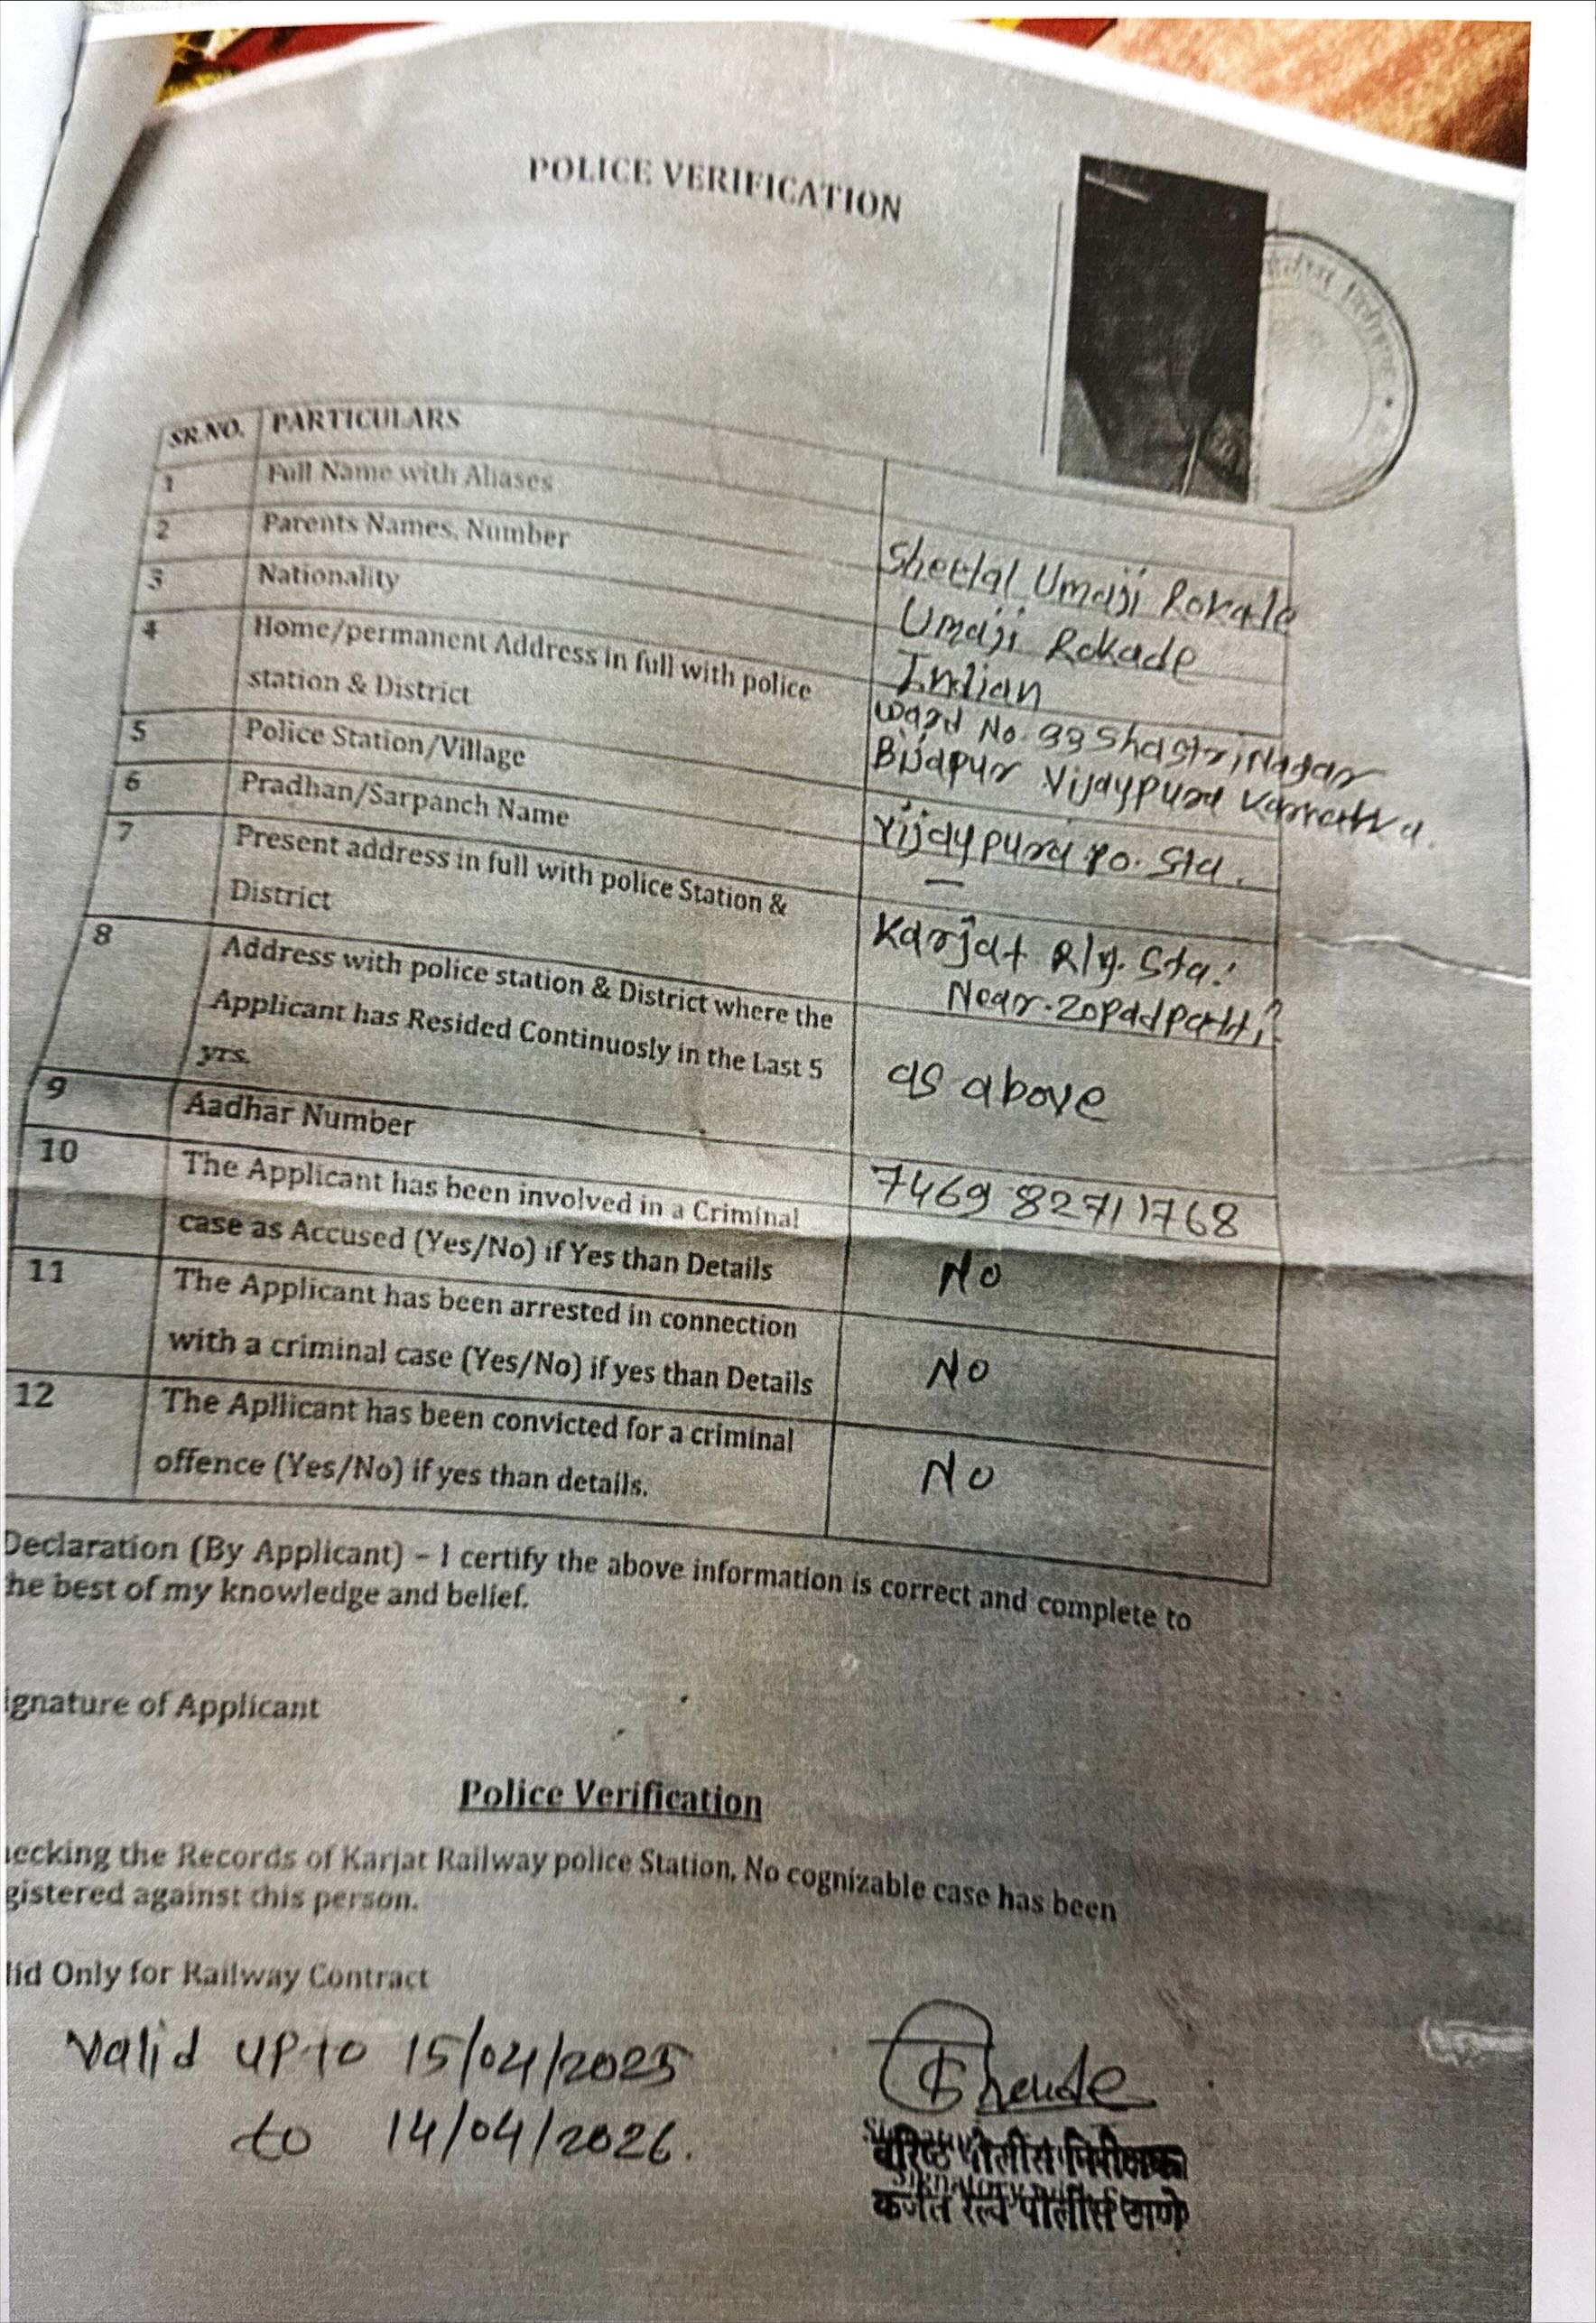 POLICE VERIFICATION
SR.NO. PARTICULARS
1 Full Name with Aliases Sheetal Umaji Rokade
2 Parents Names, Number Umaji Rokade
3 Nationality Indian
4 Home/permanent Address in full with police station & District
Ward No. 33 Shastri Nagar
Bijapur Vijaypura
5 Police Station/Village Vijaypura Po. Sta.
6 Pradhan/Sarpanch Name —
7 Present address in full with police Station & District
Karjat Rly. Sta.
Near. Zopadpatti
8 Address with police station & District where the
Applicant has Resided Continuosly in the Last 5
yrs.
as above
9 Aadhar Number 7469 82711768
10 The Applicant has been involved in a Criminal
case as Accused (Yes/No) if Yes than Details No
11 The Applicant has been arrested in connection
with a criminal case (Yes/No) if yes than Details No
12 The Apllicant has been convicted for a criminal
offence (Yes/No) if yes than details. No
Declaration (By Applicant) – I certify the above information is correct and complete to
he best of my knowledge and belief.
ignature of Applicant
Police Verification
ecking the Records of Karjat Railway police Station, No cognizable case has been
gistered against this person.
lid Only for Railway Contract
Valid upto 15/04/2025
to 14/04/2026.
वरिष्ठ पोलीस निरीक्षक
कर्जत रेल्वे पोलीस ठाणे